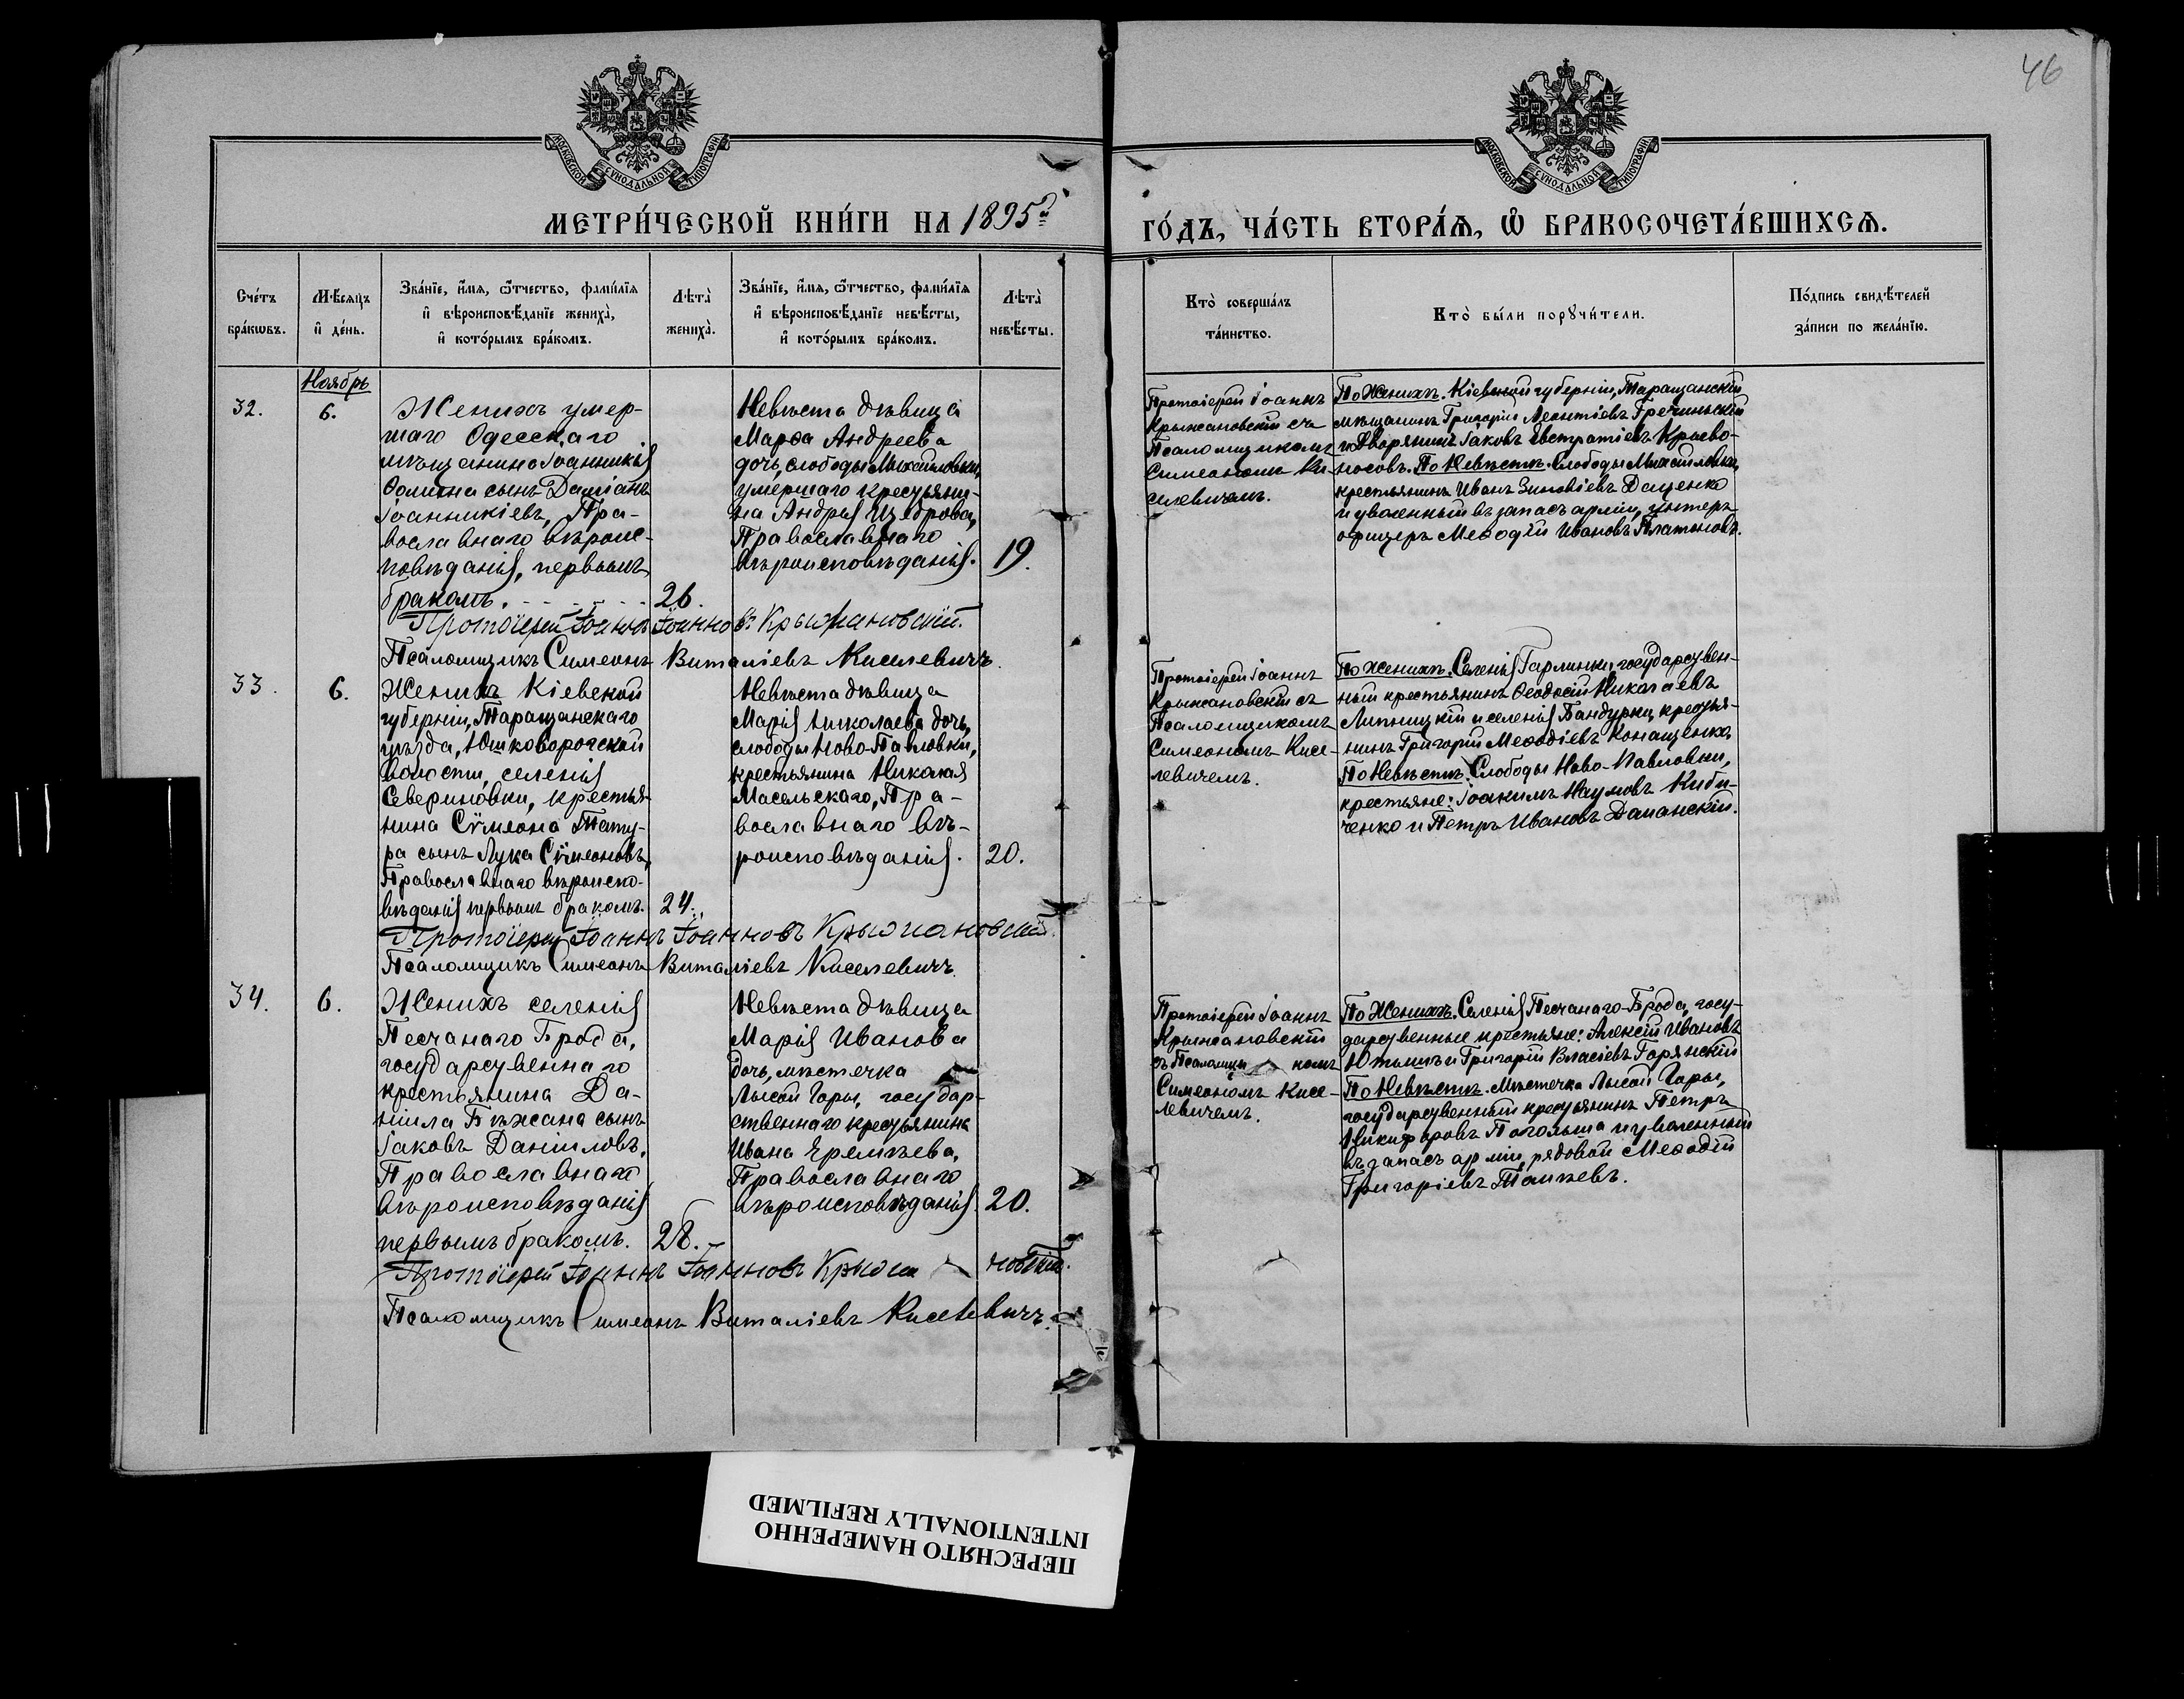 46
МОСКОВСКОЙ СѴНОДАЛЬНОЙ ТИПОГРАФІИ
МОСКОВСКОЙ СѴНОДАЛЬНОЙ ТИПОГРАФІИ
МЕТРИ́ЧЕСКОЙ КНИ́ГИ НА 1895й
ГО́ДЪ, ЧА́СТЬ ВТОРА́Ѧ, Ѽ БРАКОСОЧЕТА́ВШИХСѦ.
Сче́тъ
бра́кѡвъ.
Мѣ́сяцъ
и҆ де́нь.
Зва́нїе, и҆́мѧ, ѻ҆́тчество, фами́лїѧ
и҆ вѣроисповѣ́данїе жениха̀,
и҆ кото́рымъ бра́комъ.
Лѣта̀
жениха̀.
Зва́нїе, и҆́мѧ, ѻ҆́тчество, фами́лїѧ
и҆ вѣроисповѣ́данїе невѣ́сты,
и҆ кото́рымъ бра́комъ.
Лѣта̀
невѣ́сты.
Кто̀ соверша́лъ
та́инство.
Кто̀ бы́ли порꙋчи́тели.
По́дпись свидѣ́телей
за́писи по жела́нїю.
Ноябрь
32.
6.
Женихъ умер-
шаго Одесскаго
мѣщанина Іоанникія
Ѳомина сынъ Даміанъ
Іоанникіевъ, Пра-
вославнаго вѣроис-
повѣданія, первымъ
бракомъ.
26.
Невѣста дѣвица
Марѳа Андреева
дочь, слободы Михайловки,
умершаго крестьяни-
на Андрея Щедрова,
Православнаго
вѣроисповѣданія.
19.
Протоіерей Іоаннъ
Крыжановскій съ
Псаломщикомъ
Симеономъ Ки-
селевичемъ.
По Женихѣ. Кіевской губерніи, Таращанскій
мѣщанинъ Григорій Леонтіевъ Гречинскій
и Дворянинъ Іаковъ Евстратіевъ Криво-
носовъ. По Невѣстѣ. Слободы Михайловки,
крестьянинъ Иванъ Зиновіевъ Даценко
и уволенный въ запасъ арміи, унтеръ
офицеръ Меѳодій Ивановъ Платоновъ.
Протоіерей Іоаннъ Іоанновъ Крыжановскій.
Псаломщикъ Симеонъ Виталіевъ Киселевичъ.
33.
6.
Женихъ Кіевской
губерніи, Таращанскаго
уѣзда, Юшковорогской
волости, селенія
Севериновки, крестья-
нина Сѵмеона Тату-
ра сынъ Лука Сѵмеоновъ,
Православнаго вѣроиспо-
вѣданія первымъ бракомъ.
24.
Невѣста дѣвица
Марія Николаева дочь,
слободы Ново-Павловки,
крестьянина Николая
Масельскаго, Пра-
вославнаго вѣ-
роисповѣданія.
20.
Протоіерей Іоаннъ
Крыжановскій съ
Псаломщикомъ
Симеономъ Кисе-
левичемъ.
По Женихѣ. Селенія Тарлинки, государствен-
ный крестьянинъ Ѳеодосій Николаевъ
Липницкій и селенія Бандурки, крестья-
нинъ Григорій Меѳодіевъ Конащенко.
По Невѣстѣ. Слободы Ново-Павловки,
крестьяне: Іоакимъ Наумовъ Киби-
ченко и Петръ Ивановъ Дапанскій.
Протоіерей Іоаннъ Іоанновъ Крыжановскій.
Псаломщикъ Симеонъ Виталіевъ Киселевичъ.
34.
6.
Женихъ селенія
Песчанаго Брода,
государственнаго
крестьянина Да-
ніила Бѣжана сынъ
Іаковъ Даніиловъ,
Православнаго
вѣроисповѣданія
первымъ бракомъ.
28.
Невѣста дѣвица
Марія Иванова
дочь, мѣстечка
Лысой Горы, государ-
ственнаго крестьянина
Ивана Еремѣева,
Православнаго
вѣроисповѣданія.
20.
Протоіерей Іоаннъ
Крыжановскій
съ Псаломщикомъ
Симеономъ Кисе-
левичемъ.
По Женихѣ. Селенія Песчанаго-Брода, госу-
дарственные крестьяне: Алексій Ивановъ
Ютышъ и Григорій Власіевъ Горянскій
По Невѣстѣ. Мѣстечка Лысой Горы,
государственный крестьянинъ Петръ
Никифоровъ Погольша и уволенный
въ запасъ арміи, рядовой Меѳодій
Григоріевъ Ташѣевъ.
Протоіерей Іоаннъ Іоанновъ Крыжановскій.
Псаломщикъ Симеонъ Виталіевъ Киселевичъ.
ПЕРЕСНЯТО НАМЕРЕННО
INTENTIONALLY REFILMED